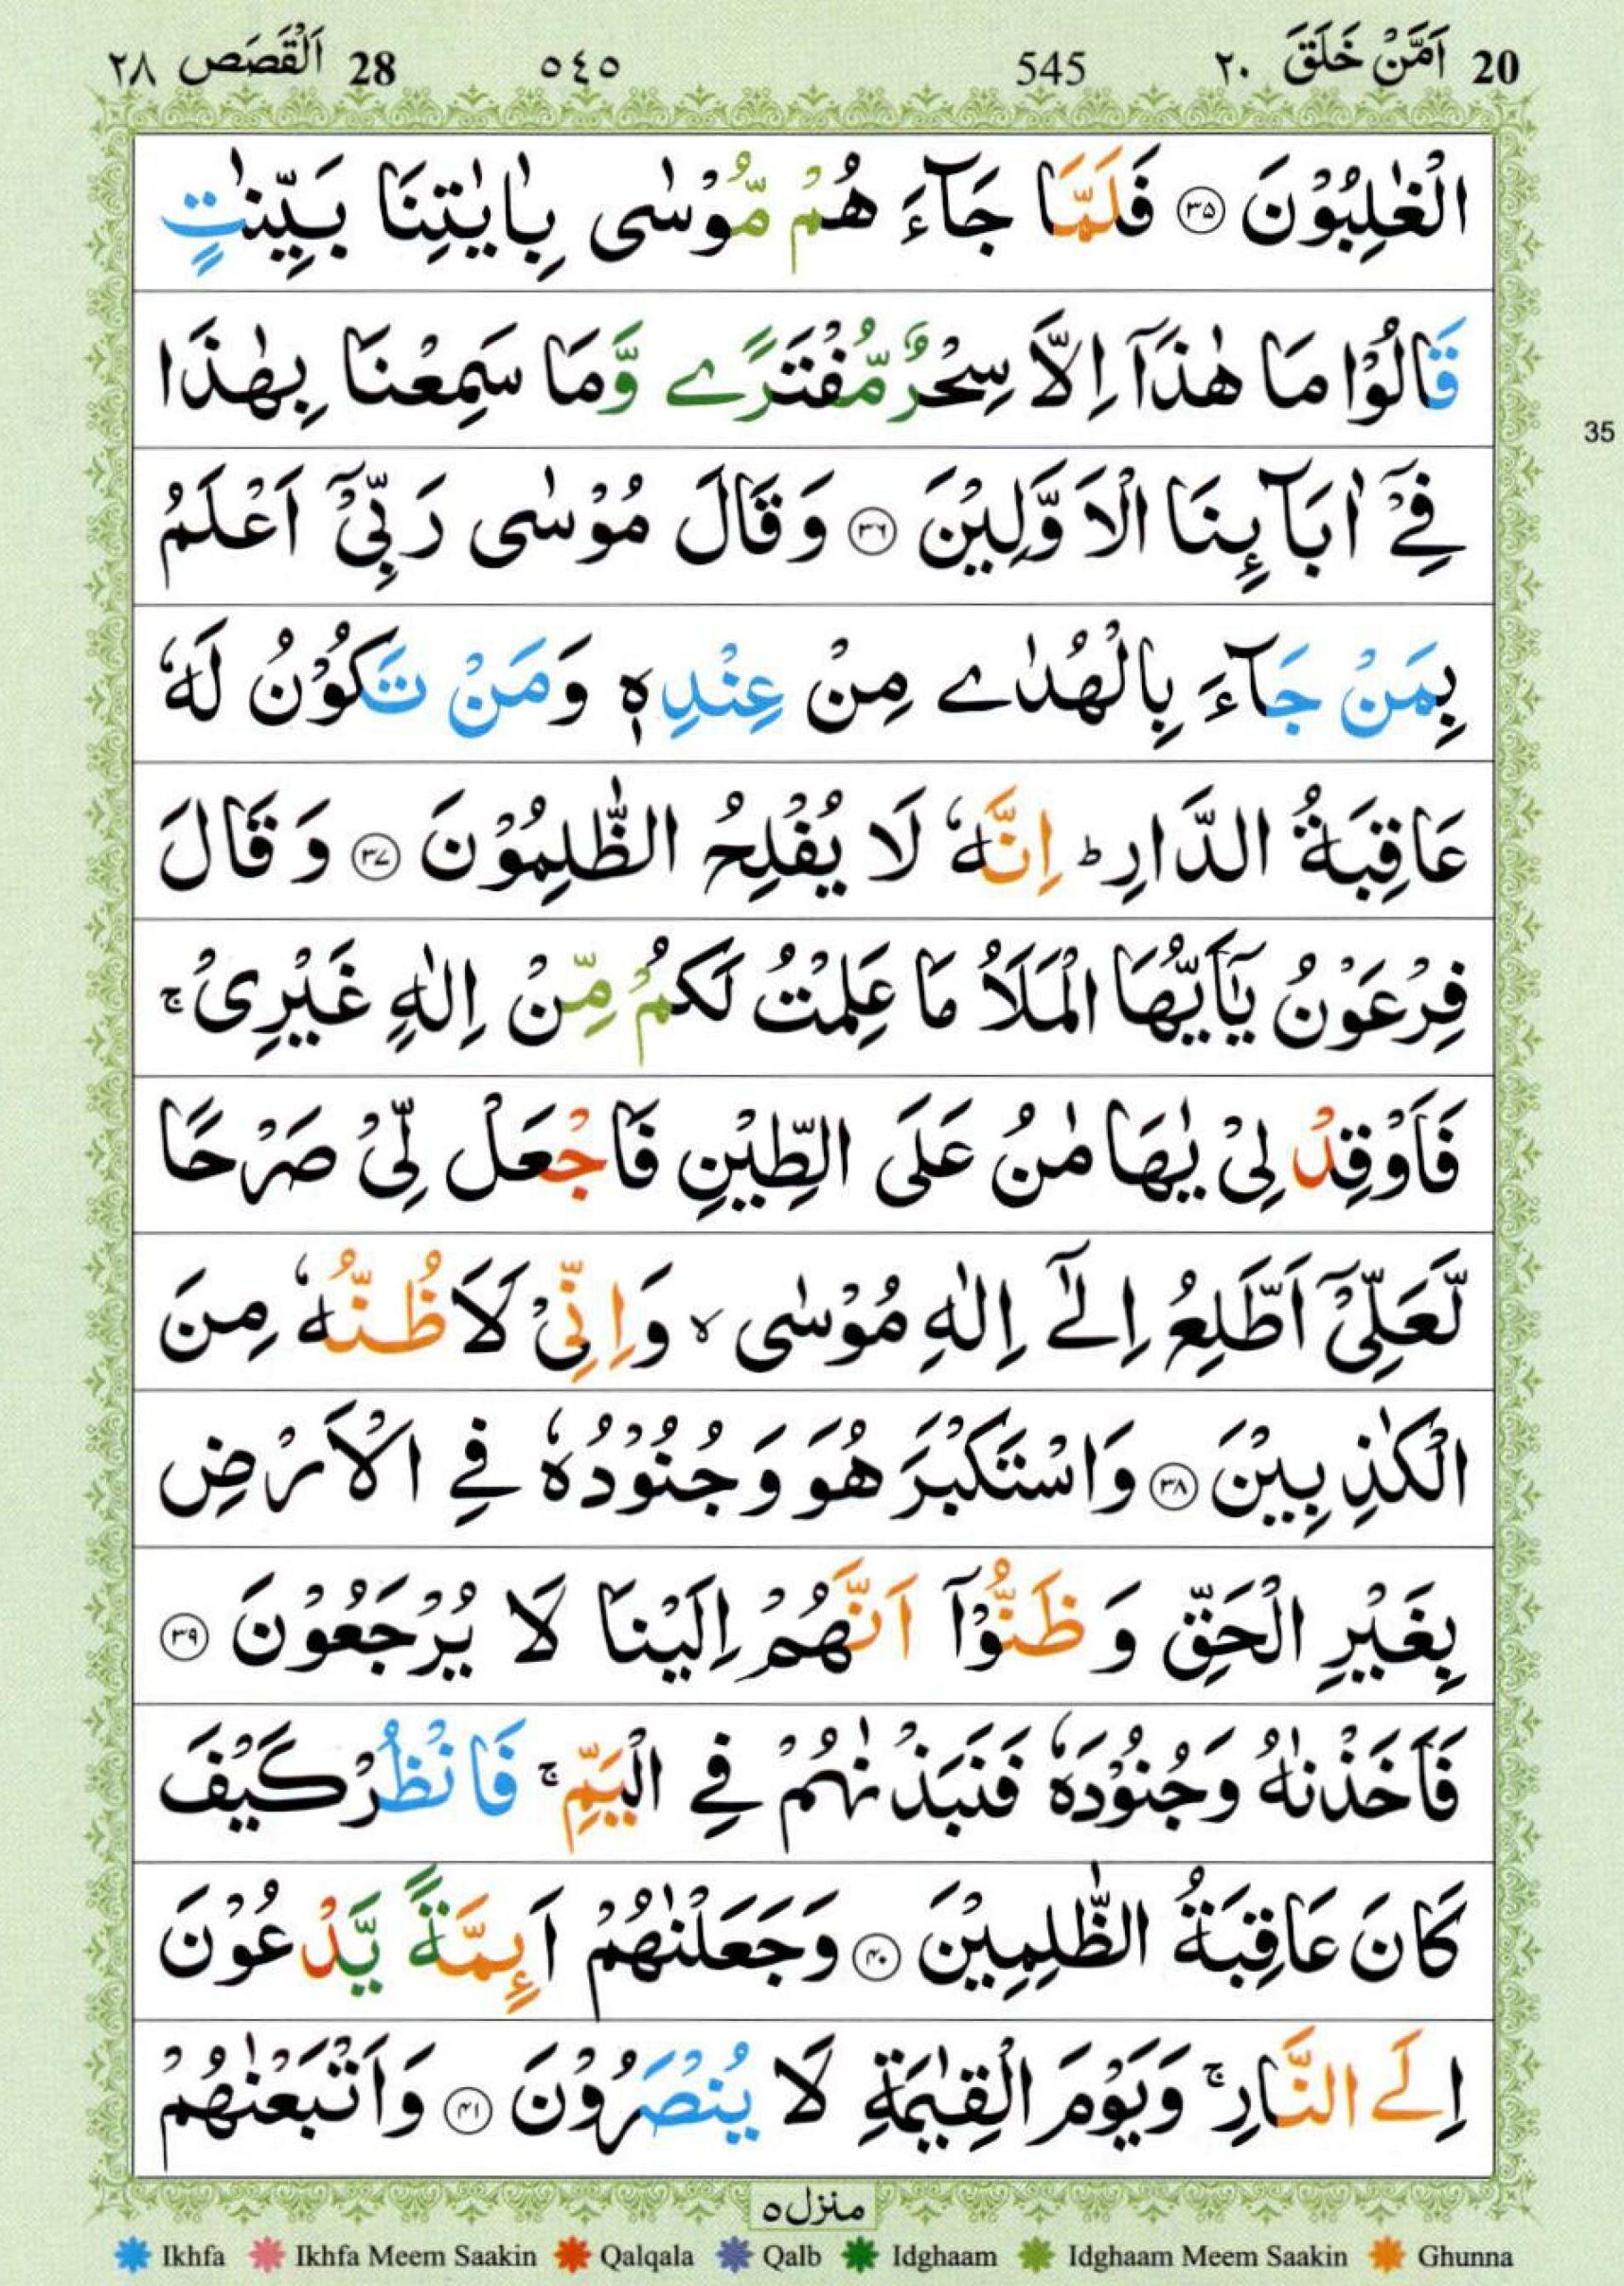 20 اَمَّنْ خَلَقَ ٢٠ 545 ٥٤٥ 28 اَلْقَصَص ٢٨
الْغٰلِبُوْنَ ۝٣٥ فَلَمَّا جَآءَ هُمْ مُّوْسٰى بِاٰيٰتِنَا بَيِّنٰتٍ
قَالُوْا مَا هٰذَآ اِلَّا سِحْرٌ مُّفْتَرًے وَّمَا سَمِعْنَا بِهٰذَا
35
فِےْٓ اٰبَآئِنَا الْاَوَّلِيْنَ ۝٣٦ وَقَالَ مُوْسٰى رَبِّىْٓ اَعْلَمُ
بِمَنْ جَآءَ بِالْهُدٰے مِنْ عِنْدِهٖ وَمَنْ تَكُوْنُ لَهٗ
عَاقِبَةُ الدَّارِ ؕ اِنَّهٗ لَا يُفْلِحُ الظّٰلِمُوْنَ ۝٣٧ وَقَالَ
فِرْعَوْنُ يٰٓاَيُّهَا الْمَلَاُ مَا عَلِمْتُ لَكُمْ مِّنْ اِلٰهٍ غَيْرِىْ ۚ
فَاَوْقِدْ لِىْ يٰهَامٰنُ عَلَى الطِّيْنِ فَاجْعَلْ لِّىْ صَرْحًا
لَّعَلِّىْٓ اَطَّلِعُ اِلٰٓے اِلٰهِ مُوْسٰى ۙ وَاِنِّىْ لَاَظُنُّهٗ مِنَ
الْكٰذِبِيْنَ ۝٣٨ وَاسْتَكْبَرَ هُوَ وَجُنُوْدُهٗ فِے الْاَرْضِ
بِغَيْرِ الْحَقِّ وَظَنُّوْٓا اَنَّهُمْ اِلَيْنَا لَا يُرْجَعُوْنَ ۝٣٩
فَاَخَذْنٰهُ وَجُنُوْدَهٗ فَنَبَذْنٰهُمْ فِے الْيَمِّ ۚ فَانْظُرْ كَيْفَ
كَانَ عَاقِبَةُ الظّٰلِمِيْنَ ۝٤٠ وَجَعَلْنٰهُمْ اَئِمَّةً يَّدْعُوْنَ
اِلَے النَّارِ ۚ وَيَوْمَ الْقِيٰمَةِ لَا يُنْصَرُوْنَ ۝٤١ وَاَتْبَعْنٰهُمْ
منزل ٥
Ikhfa Ikhfa Meem Saakin Qalqala Qalb Idghaam Idghaam Meem Saakin Ghunna